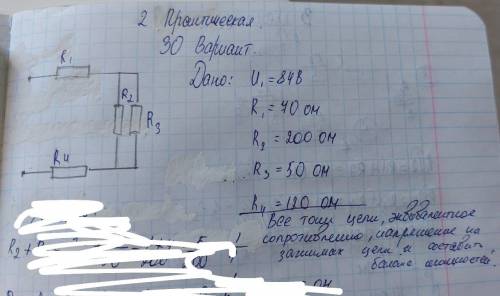 2 Практическая.
30 Вариант.
Дано: U₁ = 84В
R₁ = 70 ом
R₂ = 200 ом
R₃ = 50 ом
R₄ = 120 ом
R₁
R₂
R₃
R₄
Все токи цепи, эквивалентное
сопротивление, напряжение на
зажимах цепи и составить
баланс мощностей.
R₂ +
ом